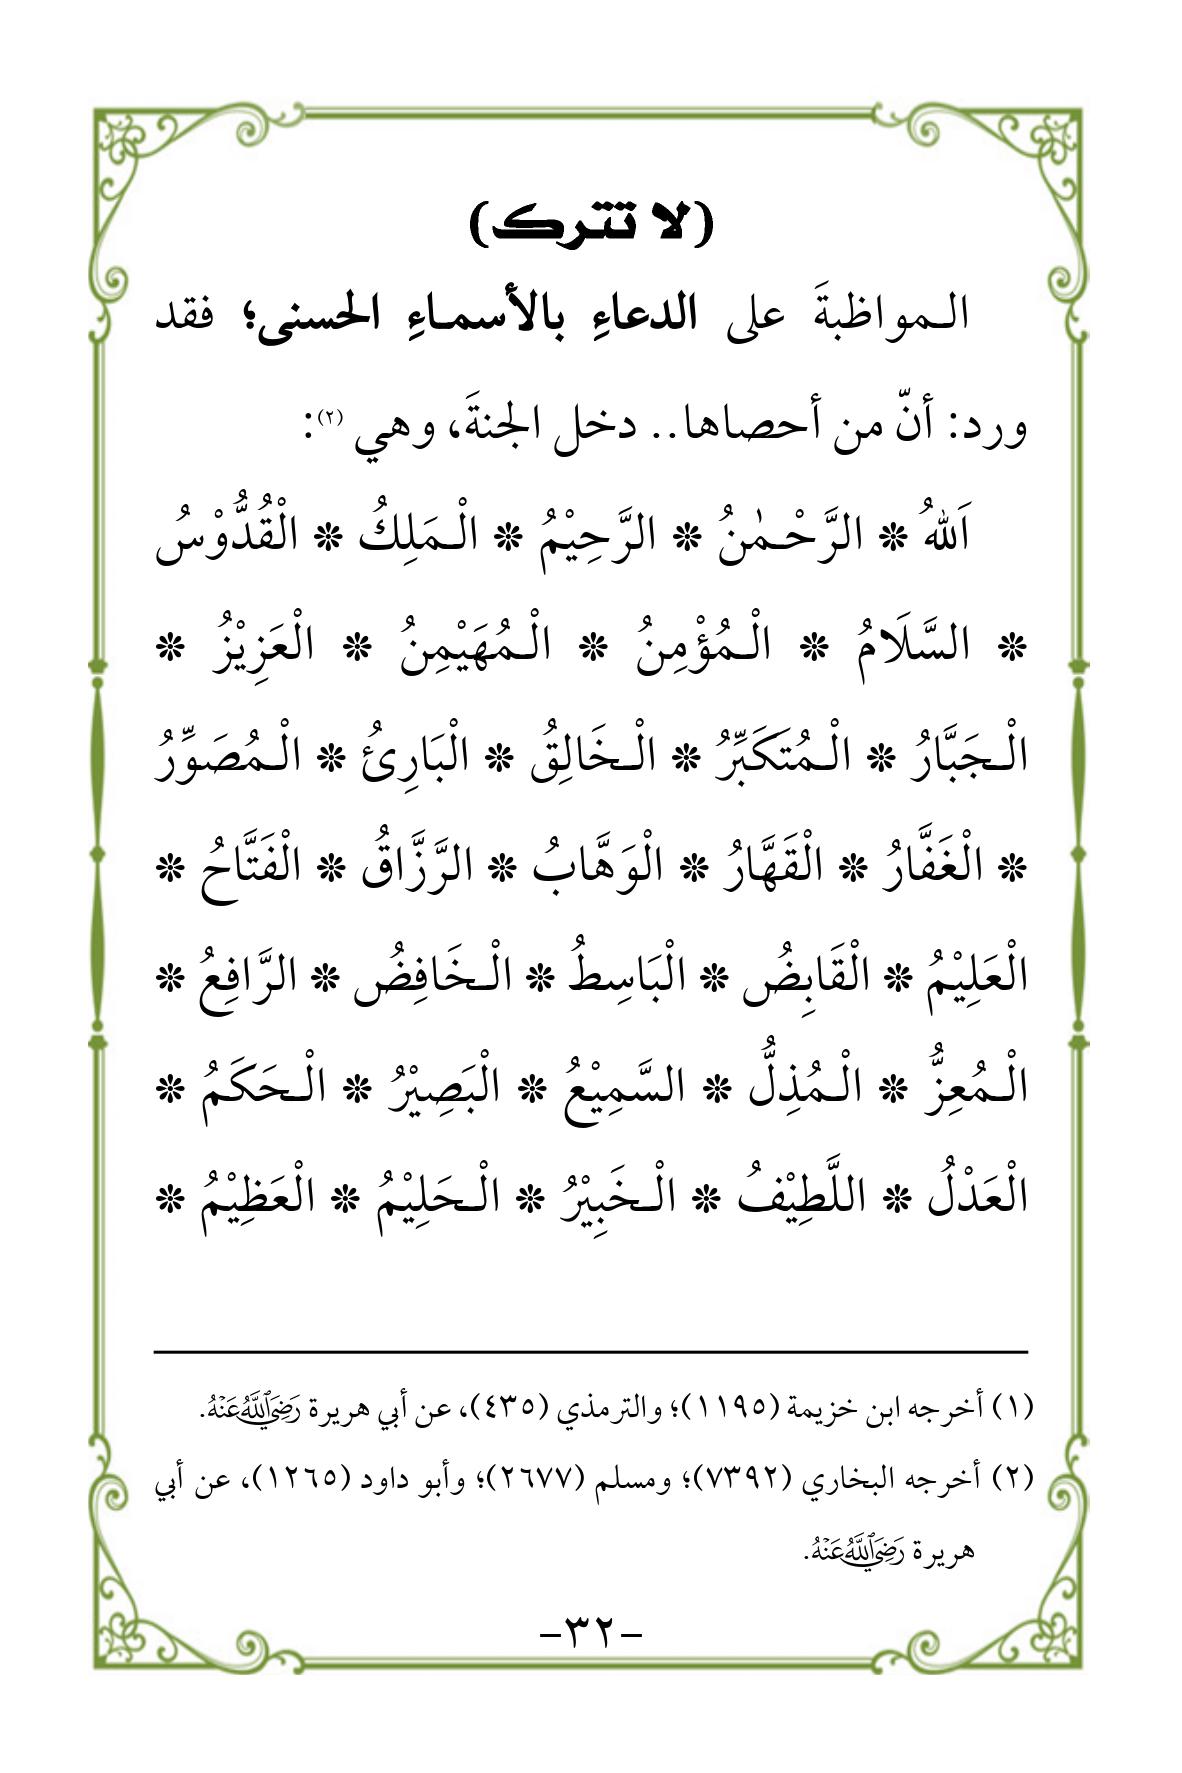 (لا تترك)
المواظبةَ على الدعاءِ بالأسماءِ الحسنى؛ فقد
ورد: أنّ من أحصاها.. دخل الجنةَ، وهي (٢):
اَللهُ * الرَّحْمٰنُ * الرَّحِيْمُ * الْمَلِكُ * الْقُدُّوْسُ
* السَّلَامُ * الْمُؤْمِنُ * الْمُهَيْمِنُ * الْعَزِيْزُ *
الْجَبَّارُ * الْمُتَكَبِّرُ * الْخَالِقُ * الْبَارِئُ * الْمُصَوِّرُ
* الْغَفَّارُ * الْقَهَّارُ * الْوَهَّابُ * الرَّزَّاقُ * الْفَتَّاحُ *
الْعَلِيْمُ * الْقَابِضُ * الْبَاسِطُ * الْخَافِضُ * الرَّافِعُ *
الْمُعِزُّ * الْمُذِلُّ * السَّمِيْعُ * الْبَصِيْرُ * الْحَكَمُ *
الْعَدْلُ * اللَّطِيْفُ * الْخَبِيْرُ * الْحَلِيْمُ * الْعَظِيْمُ *
(١) أخرجه ابن خزيمة (١١٩٥)؛ والترمذي (٤٣٥)، عن أبي هريرة رَضِيَ اللَّهُ عَنْهُ.
(٢) أخرجه البخاري (٧٣٩٢)؛ ومسلم (٢٦٧٧)؛ وأبو داود (١٢٦٥)، عن أبي
هريرة رَضِيَ اللَّهُ عَنْهُ.
-٣٢-